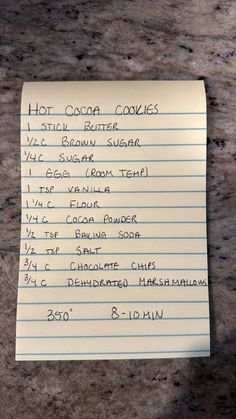 HOT COCOA COOKIES
1 STICK BUTTER
1/2 C BROWN SUGAR
1/4 C SUGAR
1 EGG (ROOM TEMP)
1 TSP VANILLA
1 1/4 C FLOUR
1/4 C COCOA POWDER
1/2 TSP BAKING SODA
1/2 TSP SALT
3/4 C CHOCOLATE CHIPS
3/4 C DEHYDRATED MARSHMALLOWS
350° 8-10 MIN